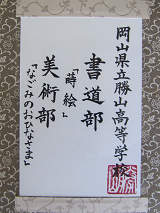 岡山県立勝山高等学校
書道部
「蒔絵」
美術部
「なごみのおひなさま」